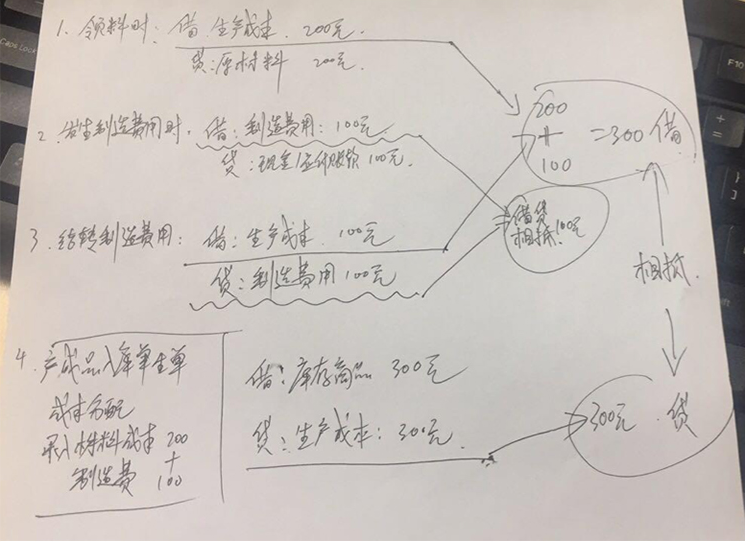 1. 领料时: 借: 生产成本. 200元.
贷: 原材料 200元.
200
+
100
=300 借
2. 发生制造费用时, 借: 制造费用: 100元.
贷: 现金/应付账款 100元.
借贷
相抵 100元
3. 结转制造费用: 借: 生产成本. 100元
贷: 制造费用 100元
相抵.
4. 产成品入库单生单
成本分配
录入材料成本 200
+
制造费 100
借: 库存商品 300元
贷: 生产成本: 300元.
300元. 贷
CapsLock
F10
+
=
}
]